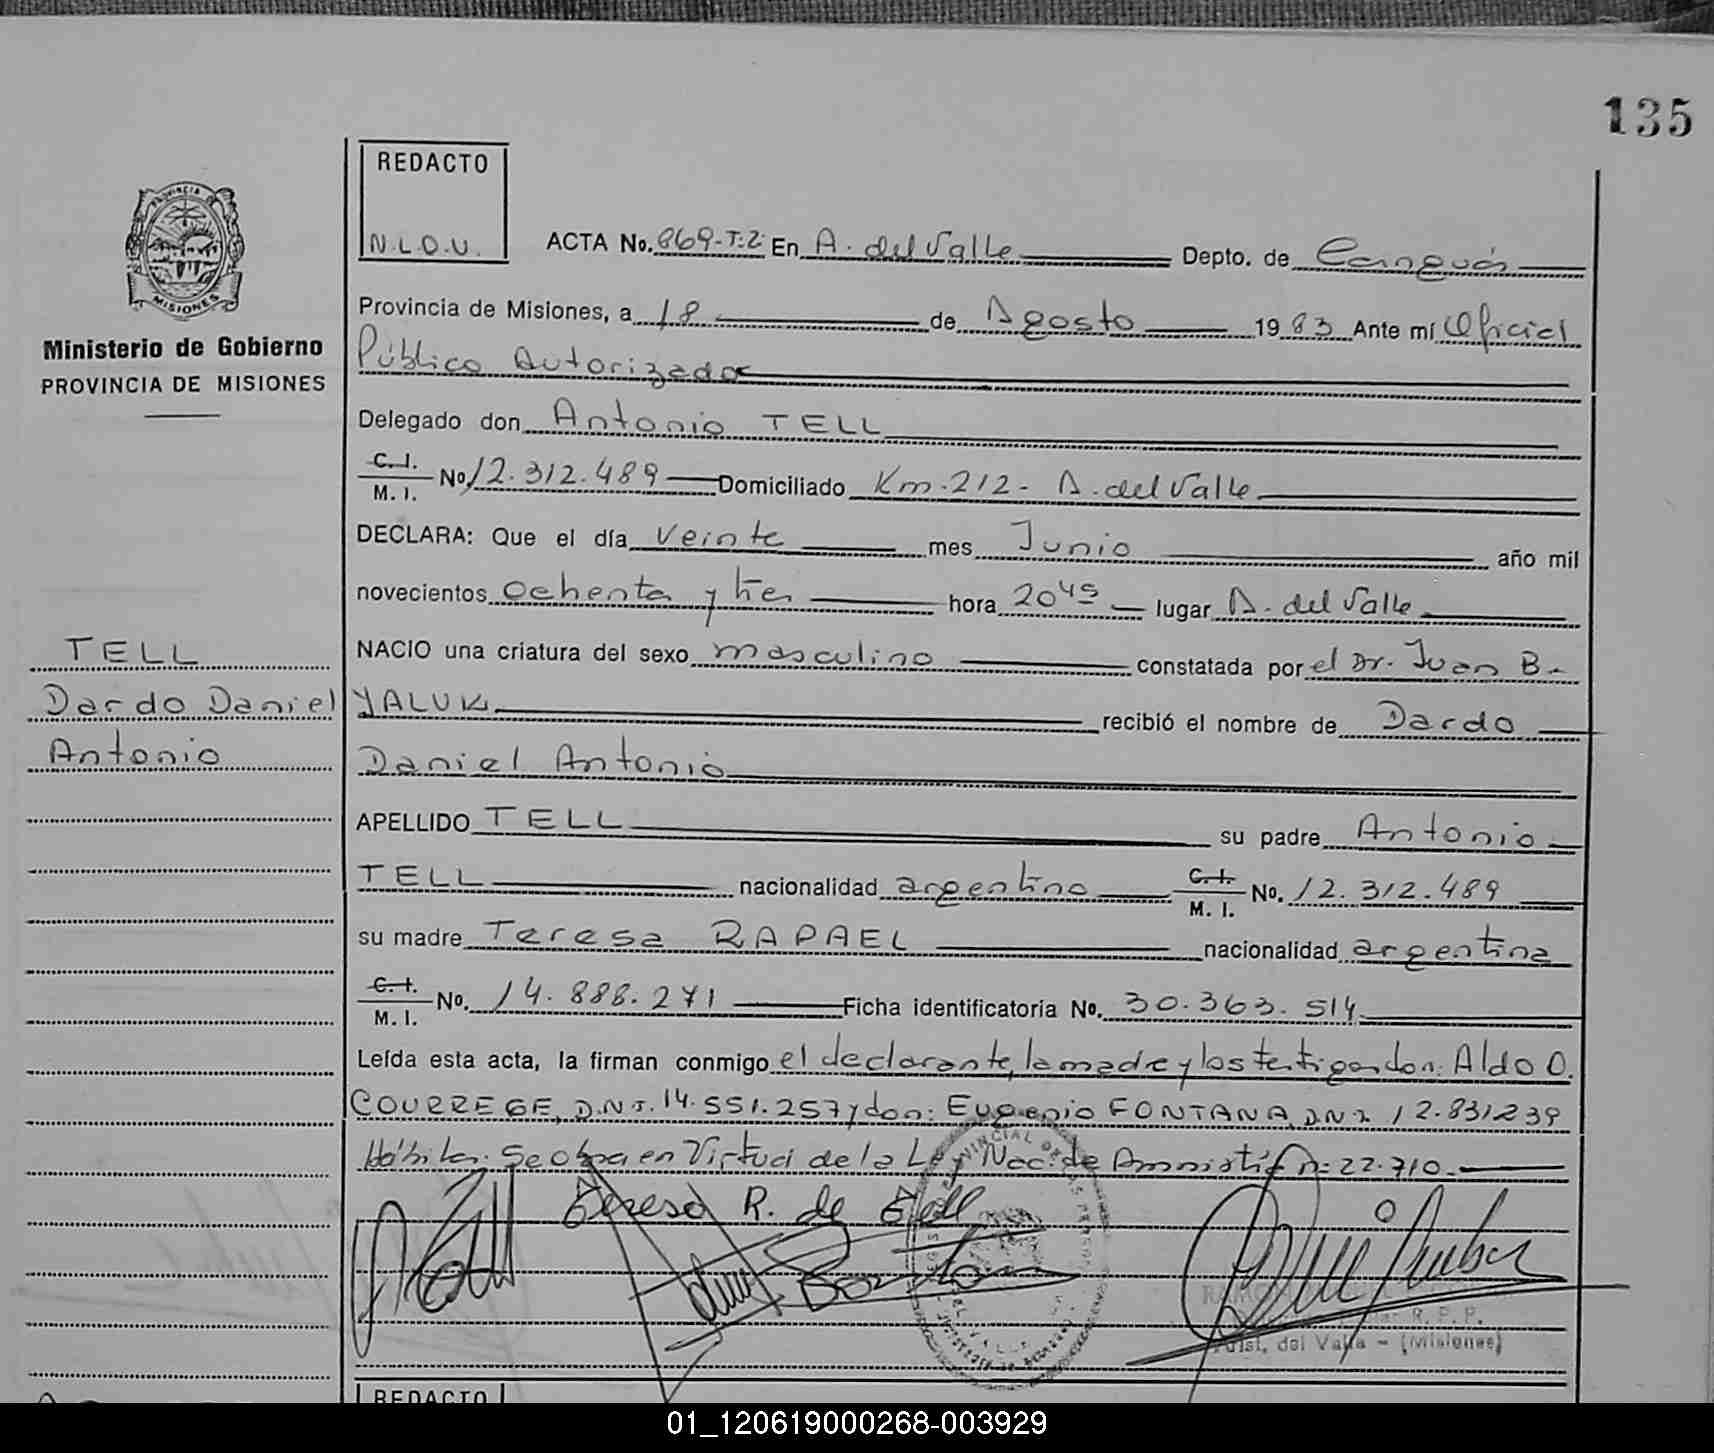 135
REDACTO
N.L.O.U.
PROVINCIA
MISIONES
Ministerio de Gobierno
PROVINCIA DE MISIONES
ACTA No. 869-T:2 En A. del Valle Depto. de Cainguás
Provincia de Misiones, a 18 de Agosto 1983 Ante mí Oficial
Público Autorizado
Delegado don Antonio TELL
C.I. M.I. No 12.312.489 Domiciliado Km.212- A. del Valle
DECLARA: Que el día veinte mes Junio año mil
novecientos ochenta y tres hora 20 45 lugar A. del Valle
TELL
NACIO una criatura del sexo masculino constatada por el Dr. Juan B.
Dardo Daniel
YALUK recibió el nombre de Dardo
Antonio
Daniel Antonio
APELLIDO TELL su padre Antonio
TELL nacionalidad argentino C.I. M.I. No. 12.312.489
su madre Teresa RAPAEL nacionalidad argentina
C.I. M.I. No. 14.888.271 Ficha identificatoria No. 30.363.514
Leída esta acta, la firman conmigo el declarante, la madre y los testigos don: Aldo O.
COURREGE, D.N.I. 14.551.257 y don: Eugenio FONTANA D.N.I. 12.831239
Hábiles. Se obra en Virtud de la Ley Nac. de Amnistía n: 22.710.
Teresa R. de Tell
R. P. P.
del Valle - (Misiones)
REDACTO
01_120619000268-003929